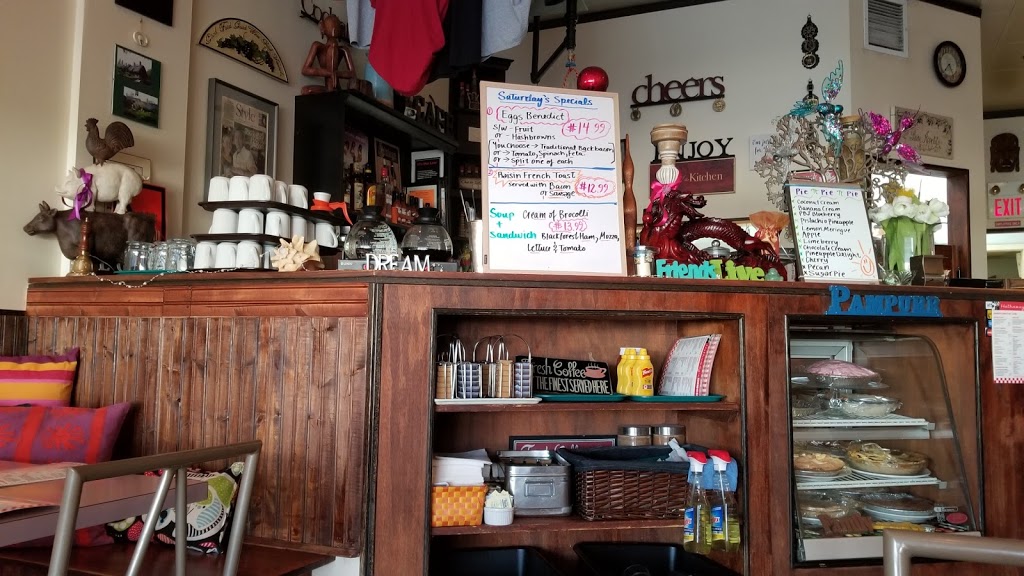 cheers
Saturday's Specials
① Eggs Benedict
s/w - Fruit
or - Hashbrowns
$14.99
You choose → Traditional Back bacon
or → Tomato, Spinach, Feta
or → Split one of each
Raisin French Toast
served with Bacon
or Sausage
$12.99
Soup Cream of Brocolli
+ $13.99
Sandwich Black forest Ham, Mozza,
Lettuce & Tomato
ENJOY
Kitchen
DREAM
Friends
Live
Pie Pie Pie
Coconut Cream
Banana Cream
PBJ Blueberry
Pistachio Pineapple
Lemon Meringue
Apple
Limeberry
Chocolate Cream
Pineapple Delight
Cherry
Pecan
Sugar Pie
EXIT
PAMPURR
Fresh Coffee
THE FINEST SERVED HERE